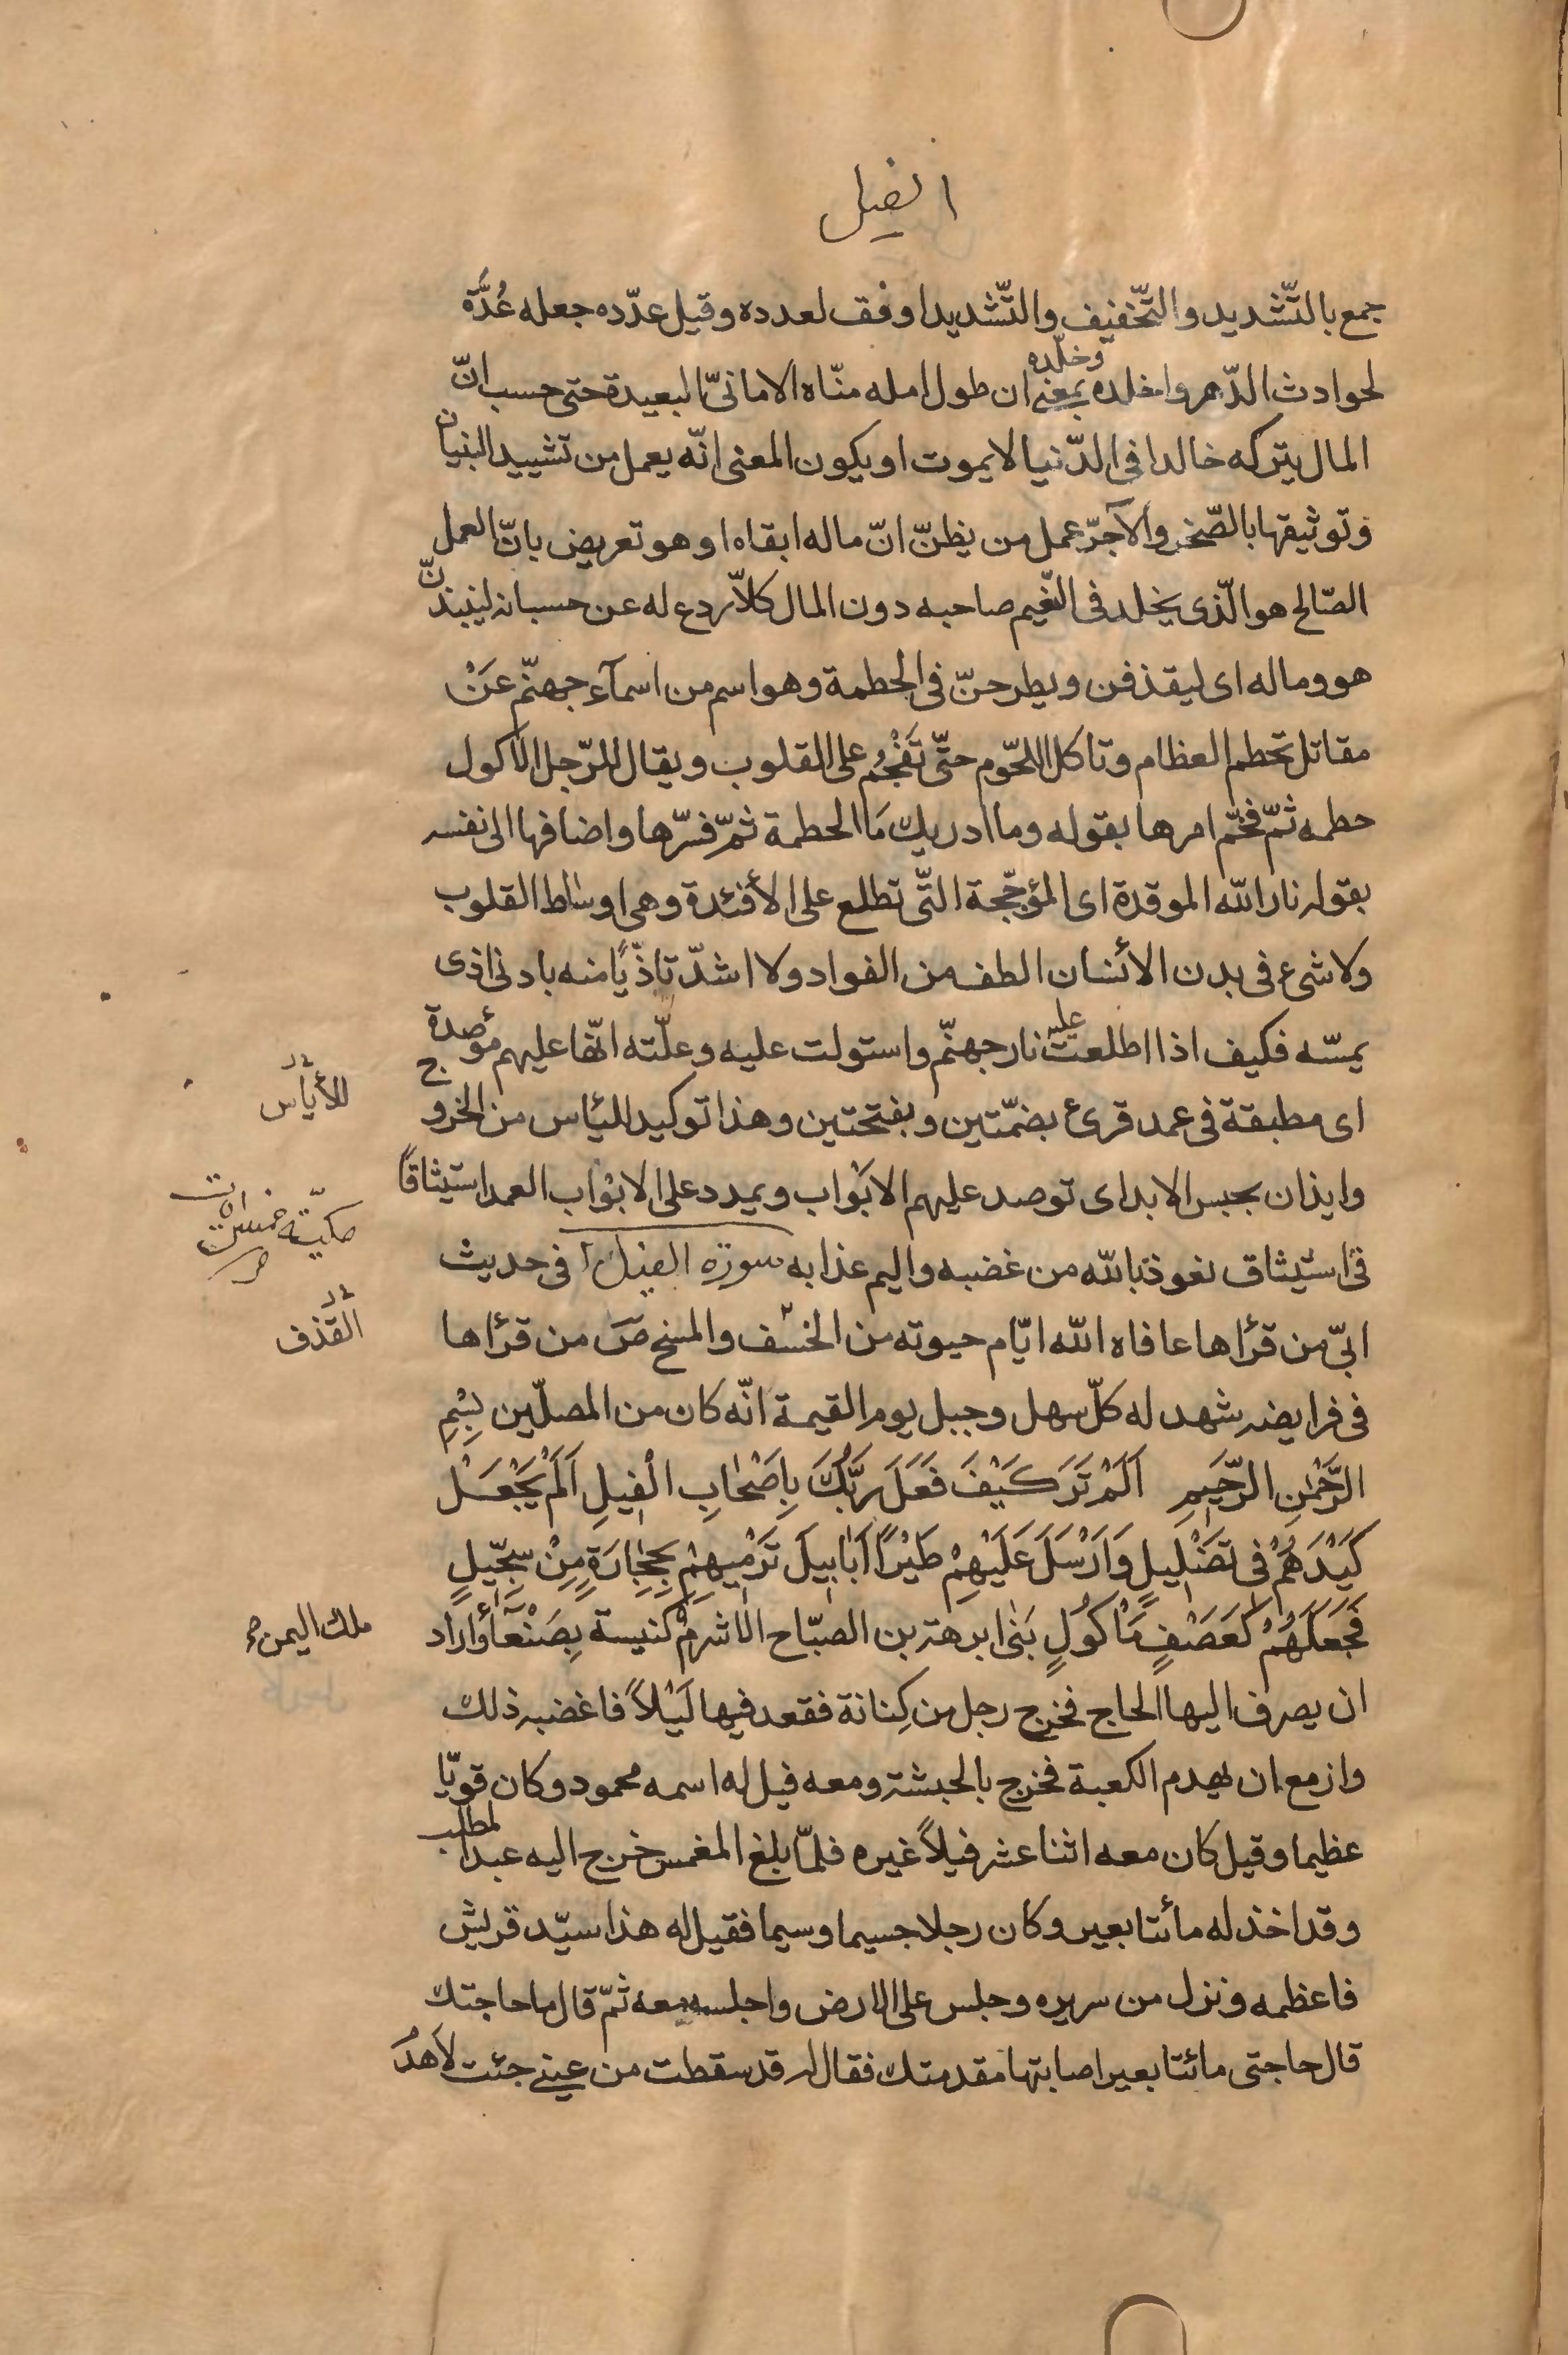 الفيل
جمع بالتّشديد والتّخفيف والتّشديد اوفق لعدده وقيل عدّده جعله عُدَّة
لحوادث الدّهر واخلده وخلّده بمعنى ان طول امله منّاه الامانىّ البعيدة حتى حسب انّ
المال يتركه خالدا فى الدّنيا لا يموت او يكون المعنى انّه يعمل من تشييد البنيان
وتوثيقها بالصّخر والآجرّ عمل من يظنّ انّ ماله ابقاه او هو تعريض بانّ العمل
الصّالح هو الّذى يخلد فى النّعيم صاحبه دون المال كلاّ ردع له عن حسبانه لينبذنّ
هو وماله اى ليقذفن ويطرحنّ فى الحطمة وهو اسم من اسمآء جهنّم عَنْ
مقاتل تحطم العظام وتاكل اللحّوم حتّى تَهْجُم على القلوب ويقال للرّجل الاكول
حطمه ثمّ فخّم امرها بقوله وما ادريك مَا الحطمة ثمّ فسّرها واضافها الى نفسه
بقوله نار الله الموقدة اى المؤجّجة التّى تطلع على الأفئدة وهى اوساط القلوب
ولا شىء فى بدن الأنسان الطف من الفواد ولا اشدّ تاذّيًا منه بادنى اذى
يمسّه فكيف اذا اطلعت عليه نار جهنّم واستولت عليه وعلّته انّها عليهم مؤصدة
اى مطبقة فى عمد قرئ بضمّتين وبفتحتين وهذا توكيد للياس من الخروج
للأياس
وايذان بحبس الابد اى توصد عليهم الابْواب ويمدد على الابْواب العمد استيثاقًا
فى استيثاق نعوذ بالله من غضبه واليم عذابه سورة الفيل فى حديث
مكيّة خمس ايات
ابىّ من قرأها عافاه الله ايّام حيوته من الخسف والمسخ صَ من قرأها
القذف
فى فرايضه شهد له كلّ سهل وجبل يوم القيمة انّه كان من المصلّين بِسْمِ
الرَّحْمٰنِ الرَّحِيمِ اَلَمْ تَرَ كَيْفَ فَعَلَ رَبُّكَ بِاَصْحٰابِ الْفِيلِ اَلَمْ يَجْعَلْ
كَيْدَهُمْ فى تَضْلِيلٍ وَاَرْسَلَ عَلَيْهِمْ طَيْرًا اَبٰابِيلَ تَرْمِيهِمْ بِحِجٰارَةٍ مِنْ سِجّيلٍ
فَجَعَلَهُمْ كَعَصْفٍ مَأْكُولٍ بَنٰى ابرهة بن الصبّاح الاشرم كنيسة بِصَنْعآء وَاراد
ملك اليمن
ان يصرف اليها الحاج فخرج رجل من كِنانة فقعد فيها لَيْلاً فاغضبه ذلك
وازمع ان يهدم الكعبة فخرج بالحبشة ومعه فيل له اسمه محمود وكان قويّا
عظيما وقيل كان معه اثنا عشر فيلاً غيره فلمّا بلغ المغمس خرج اليه عبد المطلب
وقد اخذ له مأتا بعير وكان رجلا جسيما وسيما فقيل له هذا سيّد قريش
فاعظمه ونزل من سريره وجلس على الارض واجلسه معه ثمّ قال ما حاجتك
قال حاجتى مائتا بعير اصابتها مقدمتك فقال له قد سقطت من عينى جئت لاَهدُ